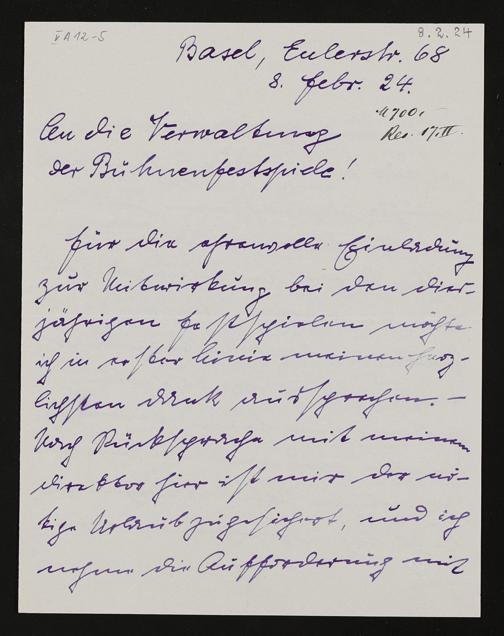 V A 12-5
8. 2. 24
Basel, Eulerstr. 68
8. Febr. 24.
M 700.-
17. II.
An die Verwaltung
der Bühnenfestspiele!
Für die ehrenvolle Einladung
zur Mitwirkung bei den dies-
jährigen Festspielen möchte
ich in erster Linie meinen herz-
lichsten Dank aussprechen. –
Nach Rücksprache mit meinem
Direktor hier ist mir der nö-
tige Urlaub zugesichert, und ich
nehme die Aufforderung mit